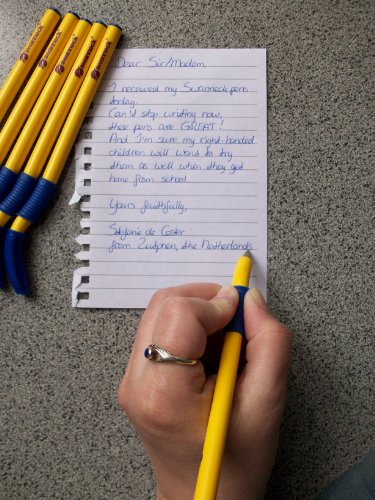 swanneck
swanneck
swanneck
swanneck
Dear Sir/Madam,
I received my Swanneck pens
today.
Can't stop writing now,
these pens are GREAT!
And I'm sure my right handed
children will want to try
them as well when they get
home from school.
Yours faithfully,
Stefanie de Coster
from Zutphen, the Netherlands